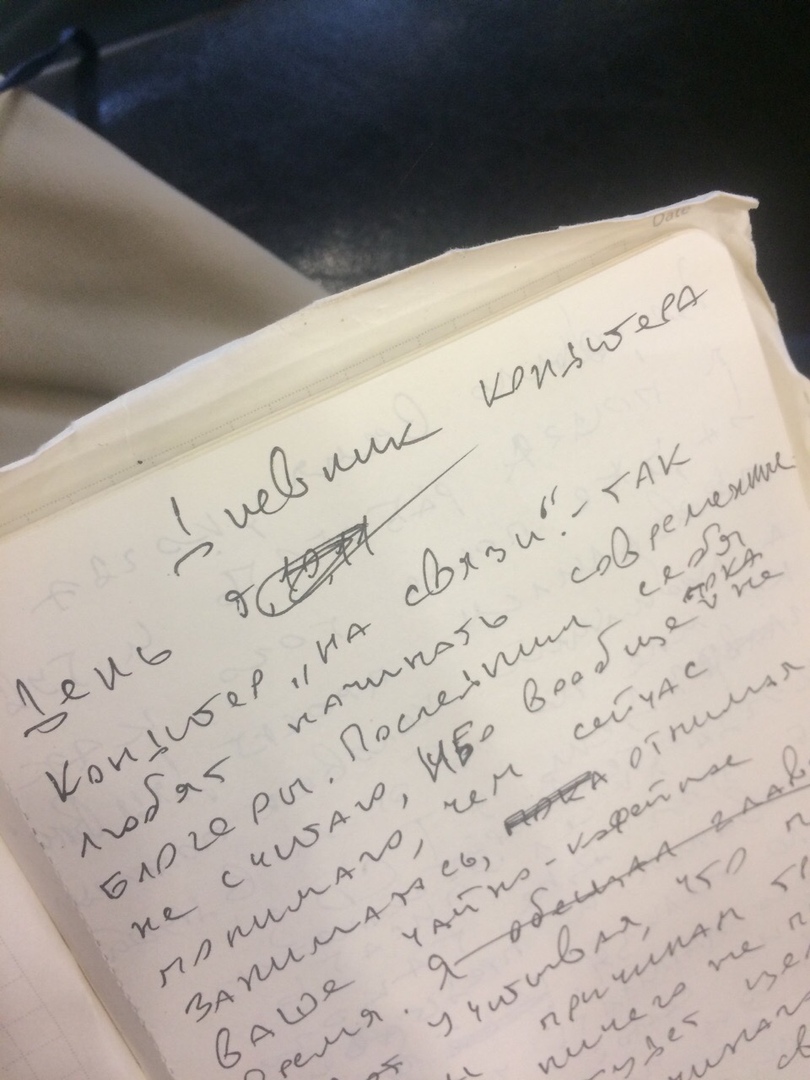 Date
Дневник кондитера
День
Кондитер „на связи“ - так
любят начинать современные
блогеры. Последним себя
не считаю, ибо вообще пока не
понимаю, чем сейчас
занимаюсь, пока отнимая
ваше чайно-кофейное
время. Я обещал
учитывая, что
причинам
ничего не
будет